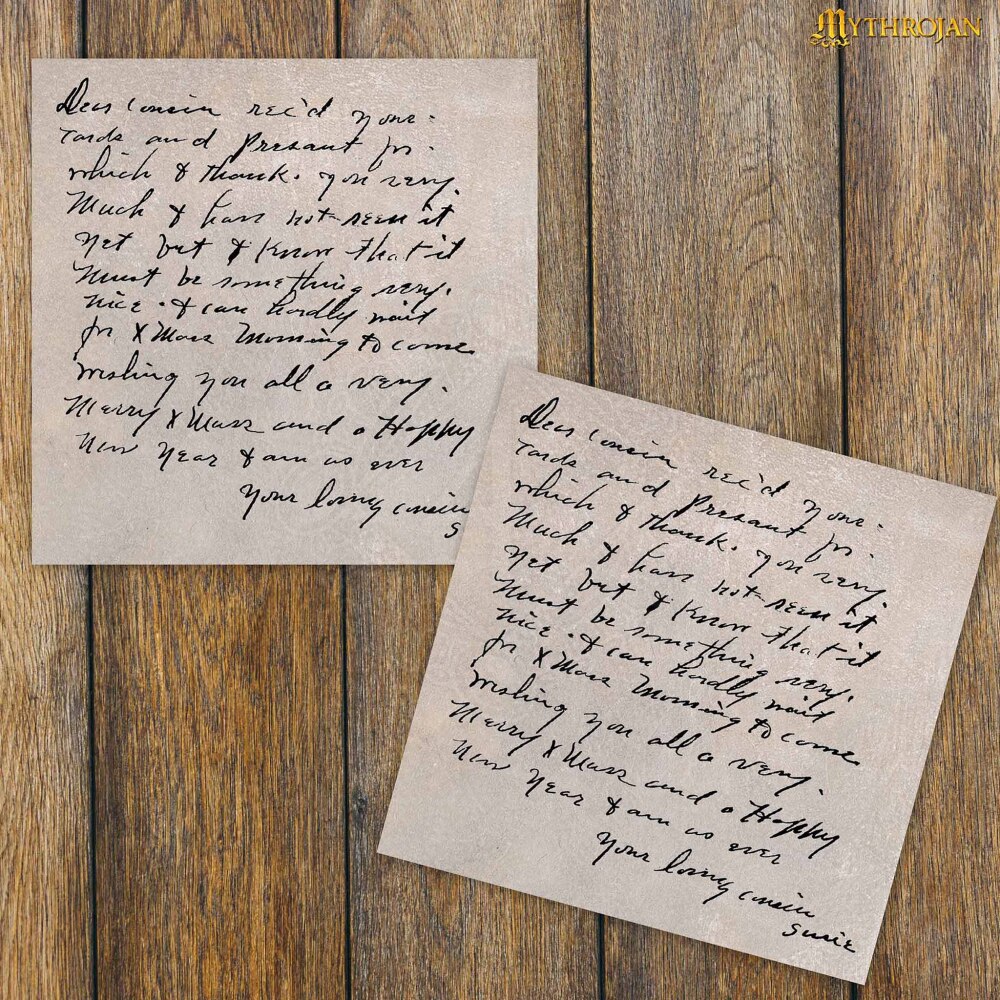 MYTHROJAN
Dear Cousin rec'd your
Cards and Presant for
which I thank you very.
Much I have not seen it
yet but I Know that it
Must be something very.
nice. I can hardly wait
for X Mass Morning to come
Wishing you all a very.
Merry X Mass and a Happy
New Year I am as ever
Your loving cousin
S
Dear Cousin rec'd your
Cards and Presant for
which I thank you very
Much I have not seen it
yet but I Know that it
Must be something very.
nice. I can hardly wait
for X Mass Morning to come
Wishing you all a very.
Merry X Mass and a Happy
New Year I am as ever
Your loving cousin
Susie